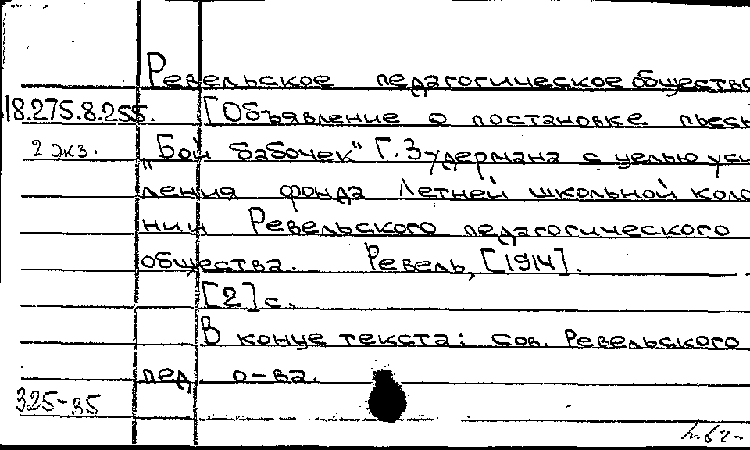 Ревельское педагогическое общество
18.275.8.255. [Объявление о постановке пьесы
2 экз. „Бой бабочек" Г. Зудермана с целью уси
ления фонда Летней школьной коло
нии Ревельского педагогического
общества. Ревель, [1914].
[2] с.
В конце текста: Сов. Ревельского
пед. о-ва.
325-35